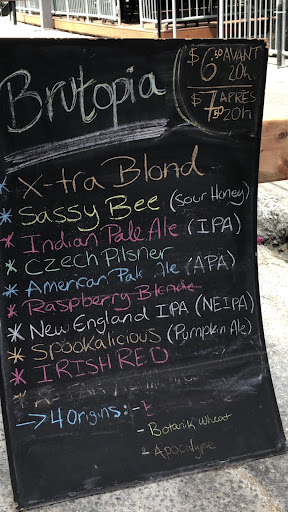 Brutopia
$6.50 AVANT
20h
$7.50 APRÈS
20h
* X-tra Blond
* Sassy Bee (Sour Honey)
* Indian Pale Ale (IPA)
* Czech Pilsner
* American Pale Ale (APA)
* Raspberry Blonde
* New England IPA (NEIPA)
* Spookalicious (Pumpkin Ale)
* IRISH RED
→ 4 Origins: -
- Botanik Wheat
- Apocalypse